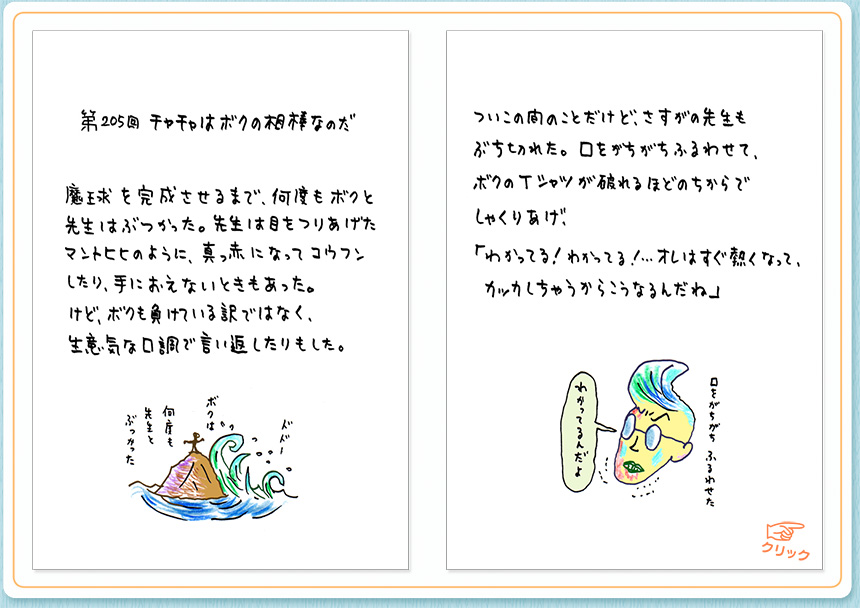 第205回 チャチャはボクの相棒なのだ
魔球を完成させるまで、何度もボクと
先生はぶつかった。先生は目をつりあげた
マントヒヒのように、真っ赤になってコウフン
したり、手におえないときもあった。
けど、ボクも負けている訳ではなく、
生意気な口調で言い返したりもした。
ボクは
何度も
先生と
ぶつかった
ドドドー
ついこの間のことだけど、さすがの先生も
ぶち切れた。口をがちがちふるわせて、
ボクのTシャツが破れるほどのちからで
しゃくりあげ、
「わかってる!わかってる!…オレはすぐ熱くなって、
カッカしちゃうからこうなるんだね」
わかってるんだよ
口をがちがち ふるわせた
クリック